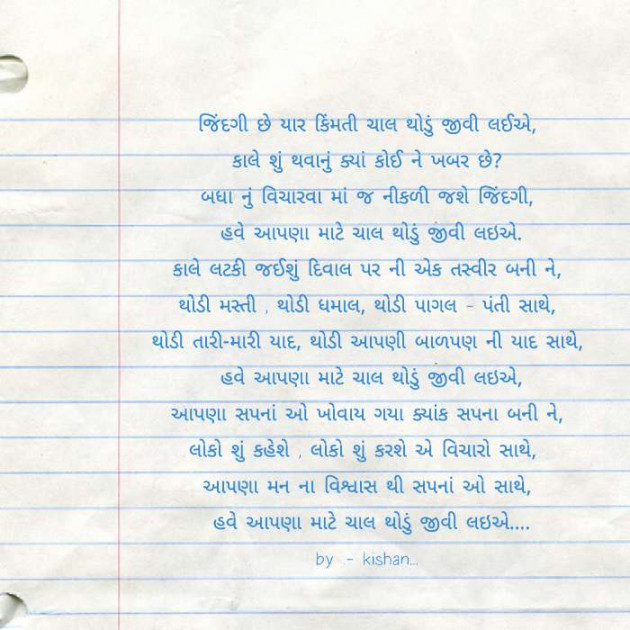 જિંદગી છે યાર કિંમતી ચાલ થોડું જીવી લઈએ,
કાલે શું થવાનું ક્યાં કોઈ ને ખબર છે?
બધા નું વિચારવા માં જ નીકળી જશે જિંદગી,
હવે આપણા માટે ચાલ થોડું જીવી લઇએ.
કાલે લટકી જઈશું દિવાલ પર ની એક તસ્વીર બની ને,
થોડી મસ્તી , થોડી ધમાલ, થોડી પાગલ - પંતી સાથે,
થોડી તારી-મારી યાદ, થોડી આપણી બાળપણ ની યાદ સાથે,
હવે આપણા માટે ચાલ થોડું જીવી લઇએ,
આપણા સપનાં ઓ ખોવાય ગયા ક્યાંક સપના બની ને,
લોકો શું કહેશે , લોકો શું કરશે એ વિચારો સાથે,
આપણા મન ના વિશ્વાસ થી સપનાં ઓ સાથે,
હવે આપણા માટે ચાલ થોડું જીવી લઇએ....
by - kishan...